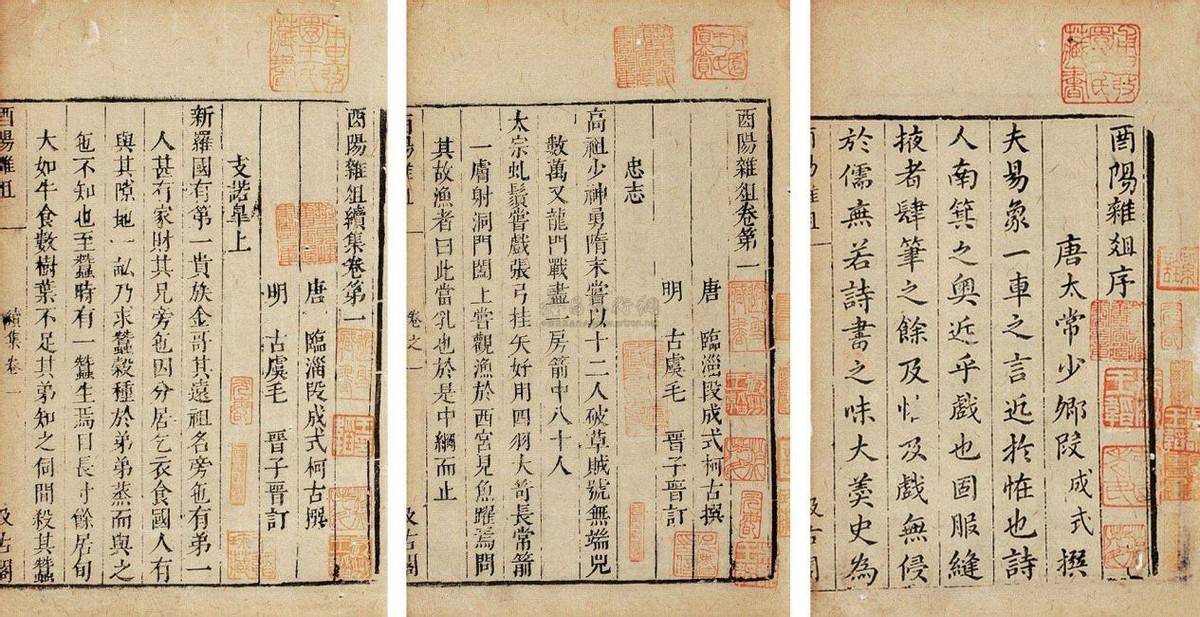 酉陽雜俎序
唐太常少卿段成式撰
夫易象一車之言近於恠也詩
人南箕之奧近乎戲也固服縫
掖者肆筆之餘及恠及戲無侵
於儒無若詩書之味大羹史為
酉陽雜俎
汲古閣
酉陽雜俎卷第一
唐 臨淄段成式柯古撰
明 古虞毛 晉子晉訂
忠志
高祖少神勇隋末嘗以十二人破草賊號無端兒
數萬又龍門戰盡一房箭中八十人
太宗虬鬚嘗戲張弓挂矢好用四羽大笴長常箭
一膚射洞門闔上嘗觀漁於西宮見魚躍焉問
其故漁者曰此當乳也於是中網而止
酉陽雜俎
卷之一
汲古閣
酉陽雜俎續集卷第一
唐 臨淄段成式柯古撰
明 古虞毛 晉子晉訂
支諾皐上
新羅國有第一貴族金哥其遠祖名旁㐌有弟一
人甚有家財其兄旁㐌因分居乞衣食國人有
與其隙地一畝乃求蠶穀種於弟弟蒸而與之
㐌不知也至蠶時有一蠶生焉日長寸餘居旬
大如牛食數樹葉不足其弟知之伺間殺其蠶
酉陽雜俎
續集卷一
汲古閣